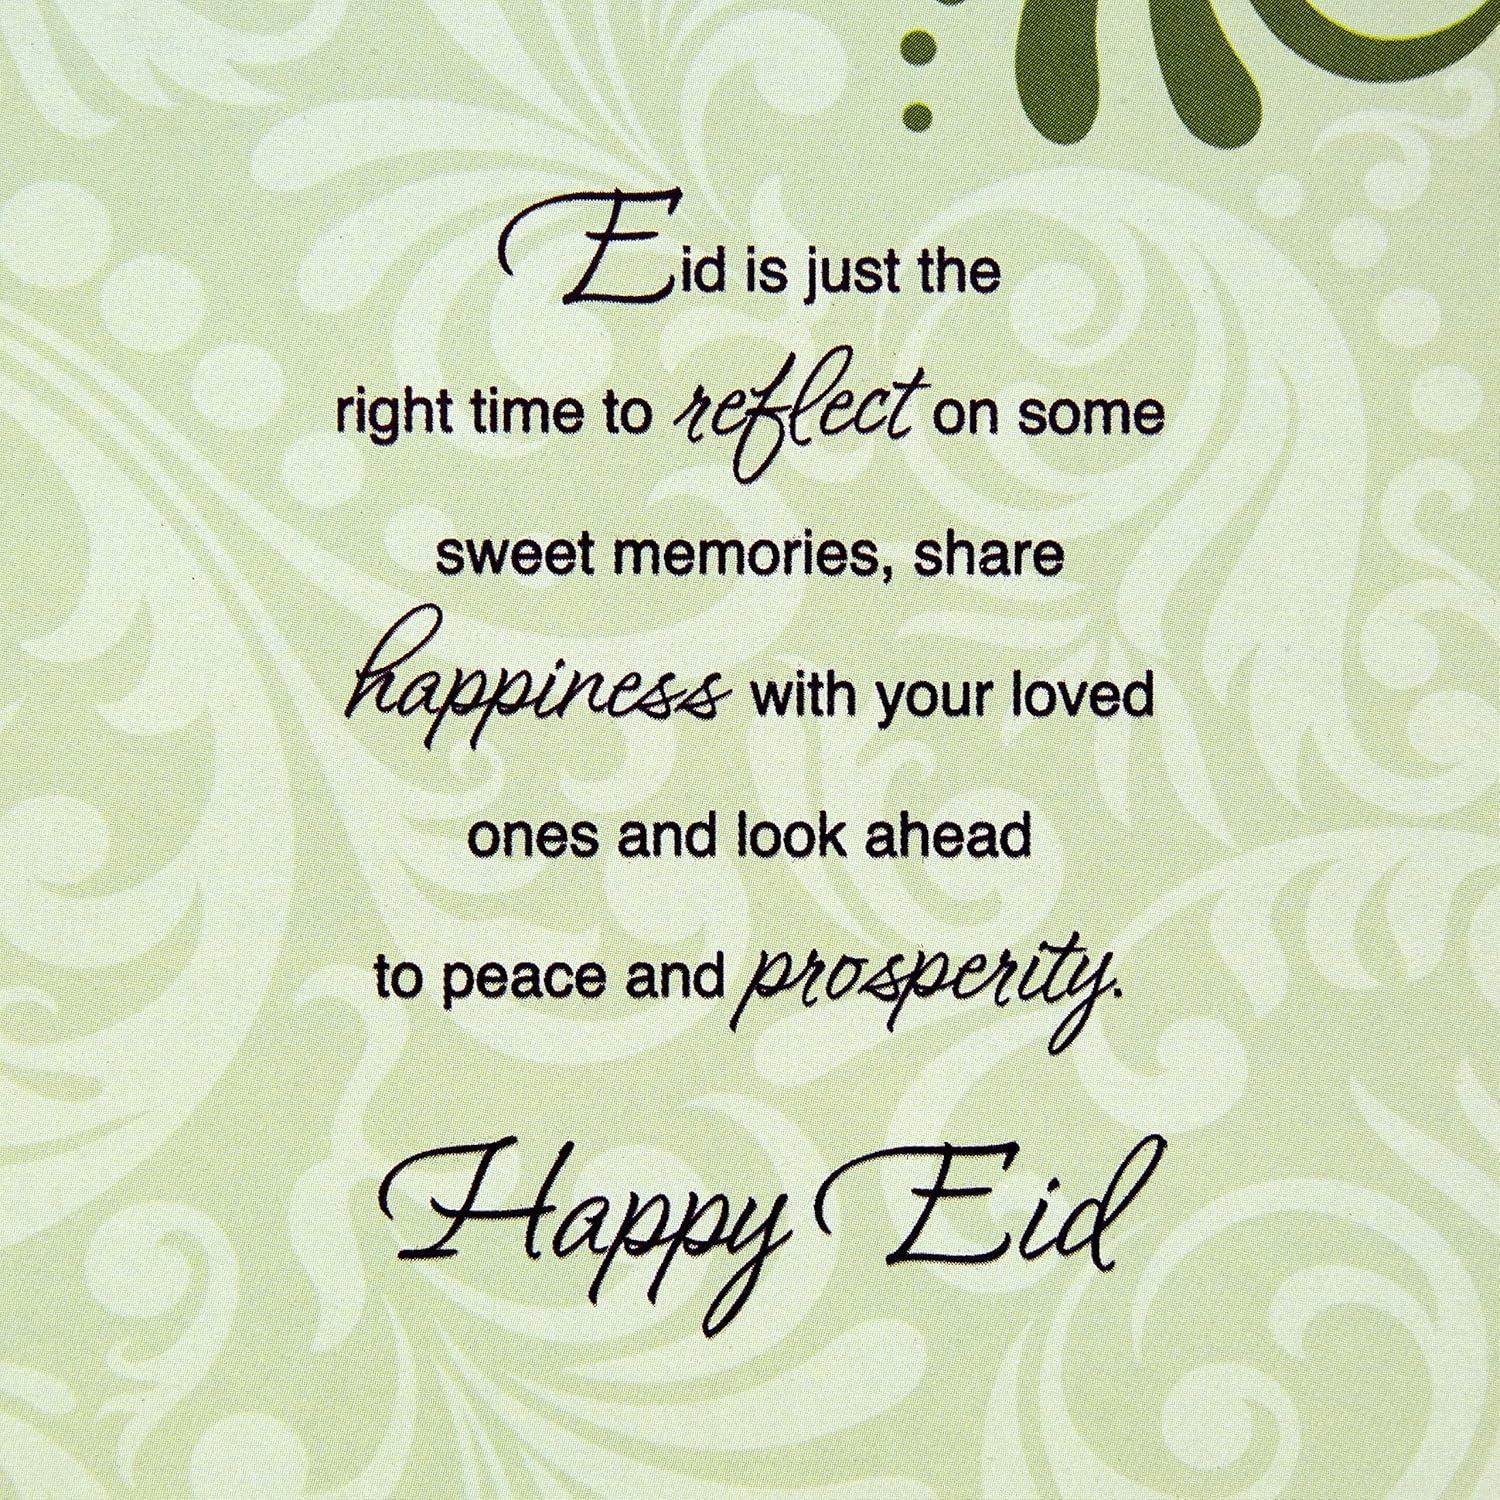 Eid is just the
right time to reflect on some
sweet memories, share
happiness with your loved
ones and look ahead
to peace and prosperity.
Happy Eid